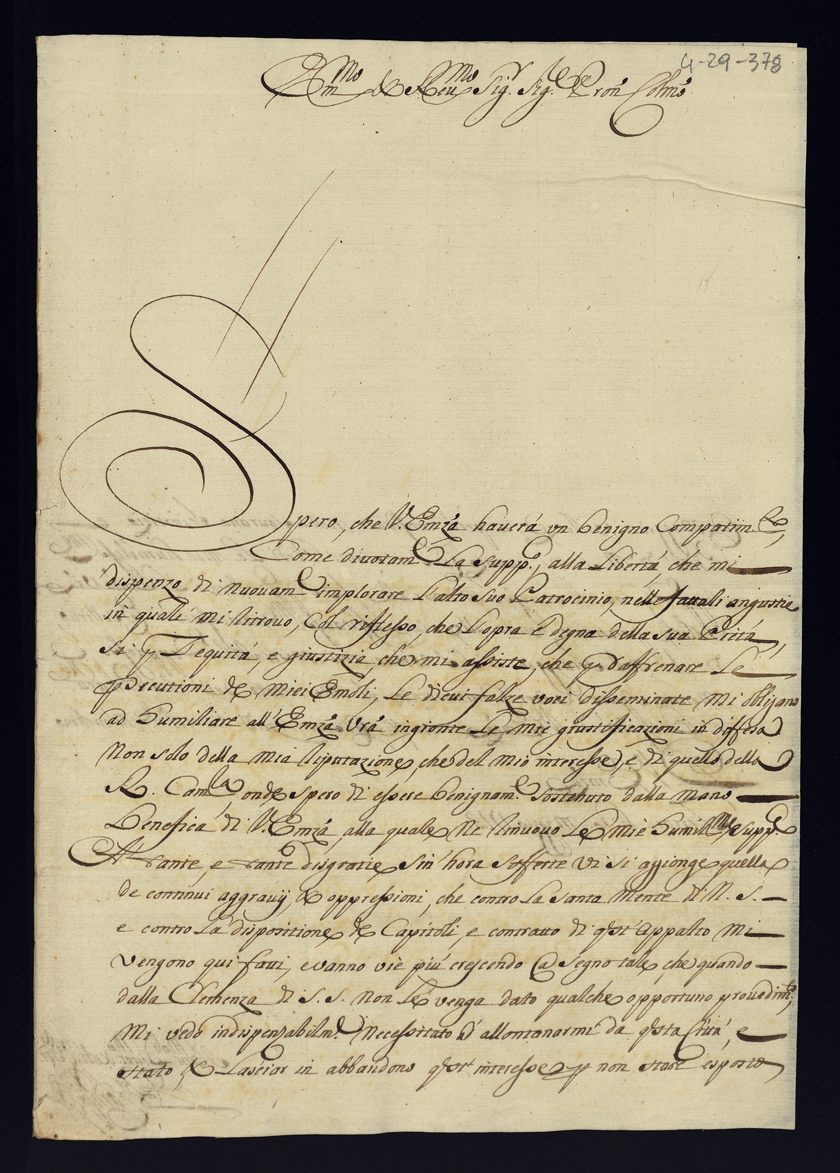 4-29-378
Em.mo & Reu.mo Sig.r Sig.re Pron Colmo
Spero, che V. Emza hauerá vn benigno Compatim.to,
Come diuotam.e La supp.co, alla Libertá che mi
dispenzo di nuouam.e implorare L'alto suo Patrocinio, nelle fatali angustie
in quali mi ritrouo, Col riflesso, che L'opra é degna della sua Pietá,
si p L'equitá, e giustizia che mi assiste, che p raffrenare Le
psecutioni de Miei Emoli, Le di cui falze voci disseminate mi obligano
ad humiliare all'Emza Vra ingionte Le mie giustificazioni in diffesa
Non solo della mia riputazione, che del mio interesse, e di quello della
R. Cam.ra, onde spero di essere benignam.e sostenuto dalla mano
Benefica di V. Emza, alla quale Ne rinuouo Le mie humil.me supp.e
A tante, e tante disgratie sin'hora sofferte vi si aggionge quella
de continui aggrauij, & oppressioni, che contro La santa Mente di N. S.
e contro La dispositione de Capitoli, e contratto di qst'Appalto mi
vengono qui fatti, e vanno vié piú crescendo a segno tale, che quando
dalla Clemenza di S. S. non Le venga dato qualche opportuno prouedim.to,
Mi vedo indispenzabilm.e Necessitato d'allontanarmi da qsta Cittá, e
stato, & Lasciar in abbandono qst'interesse p non star esposto